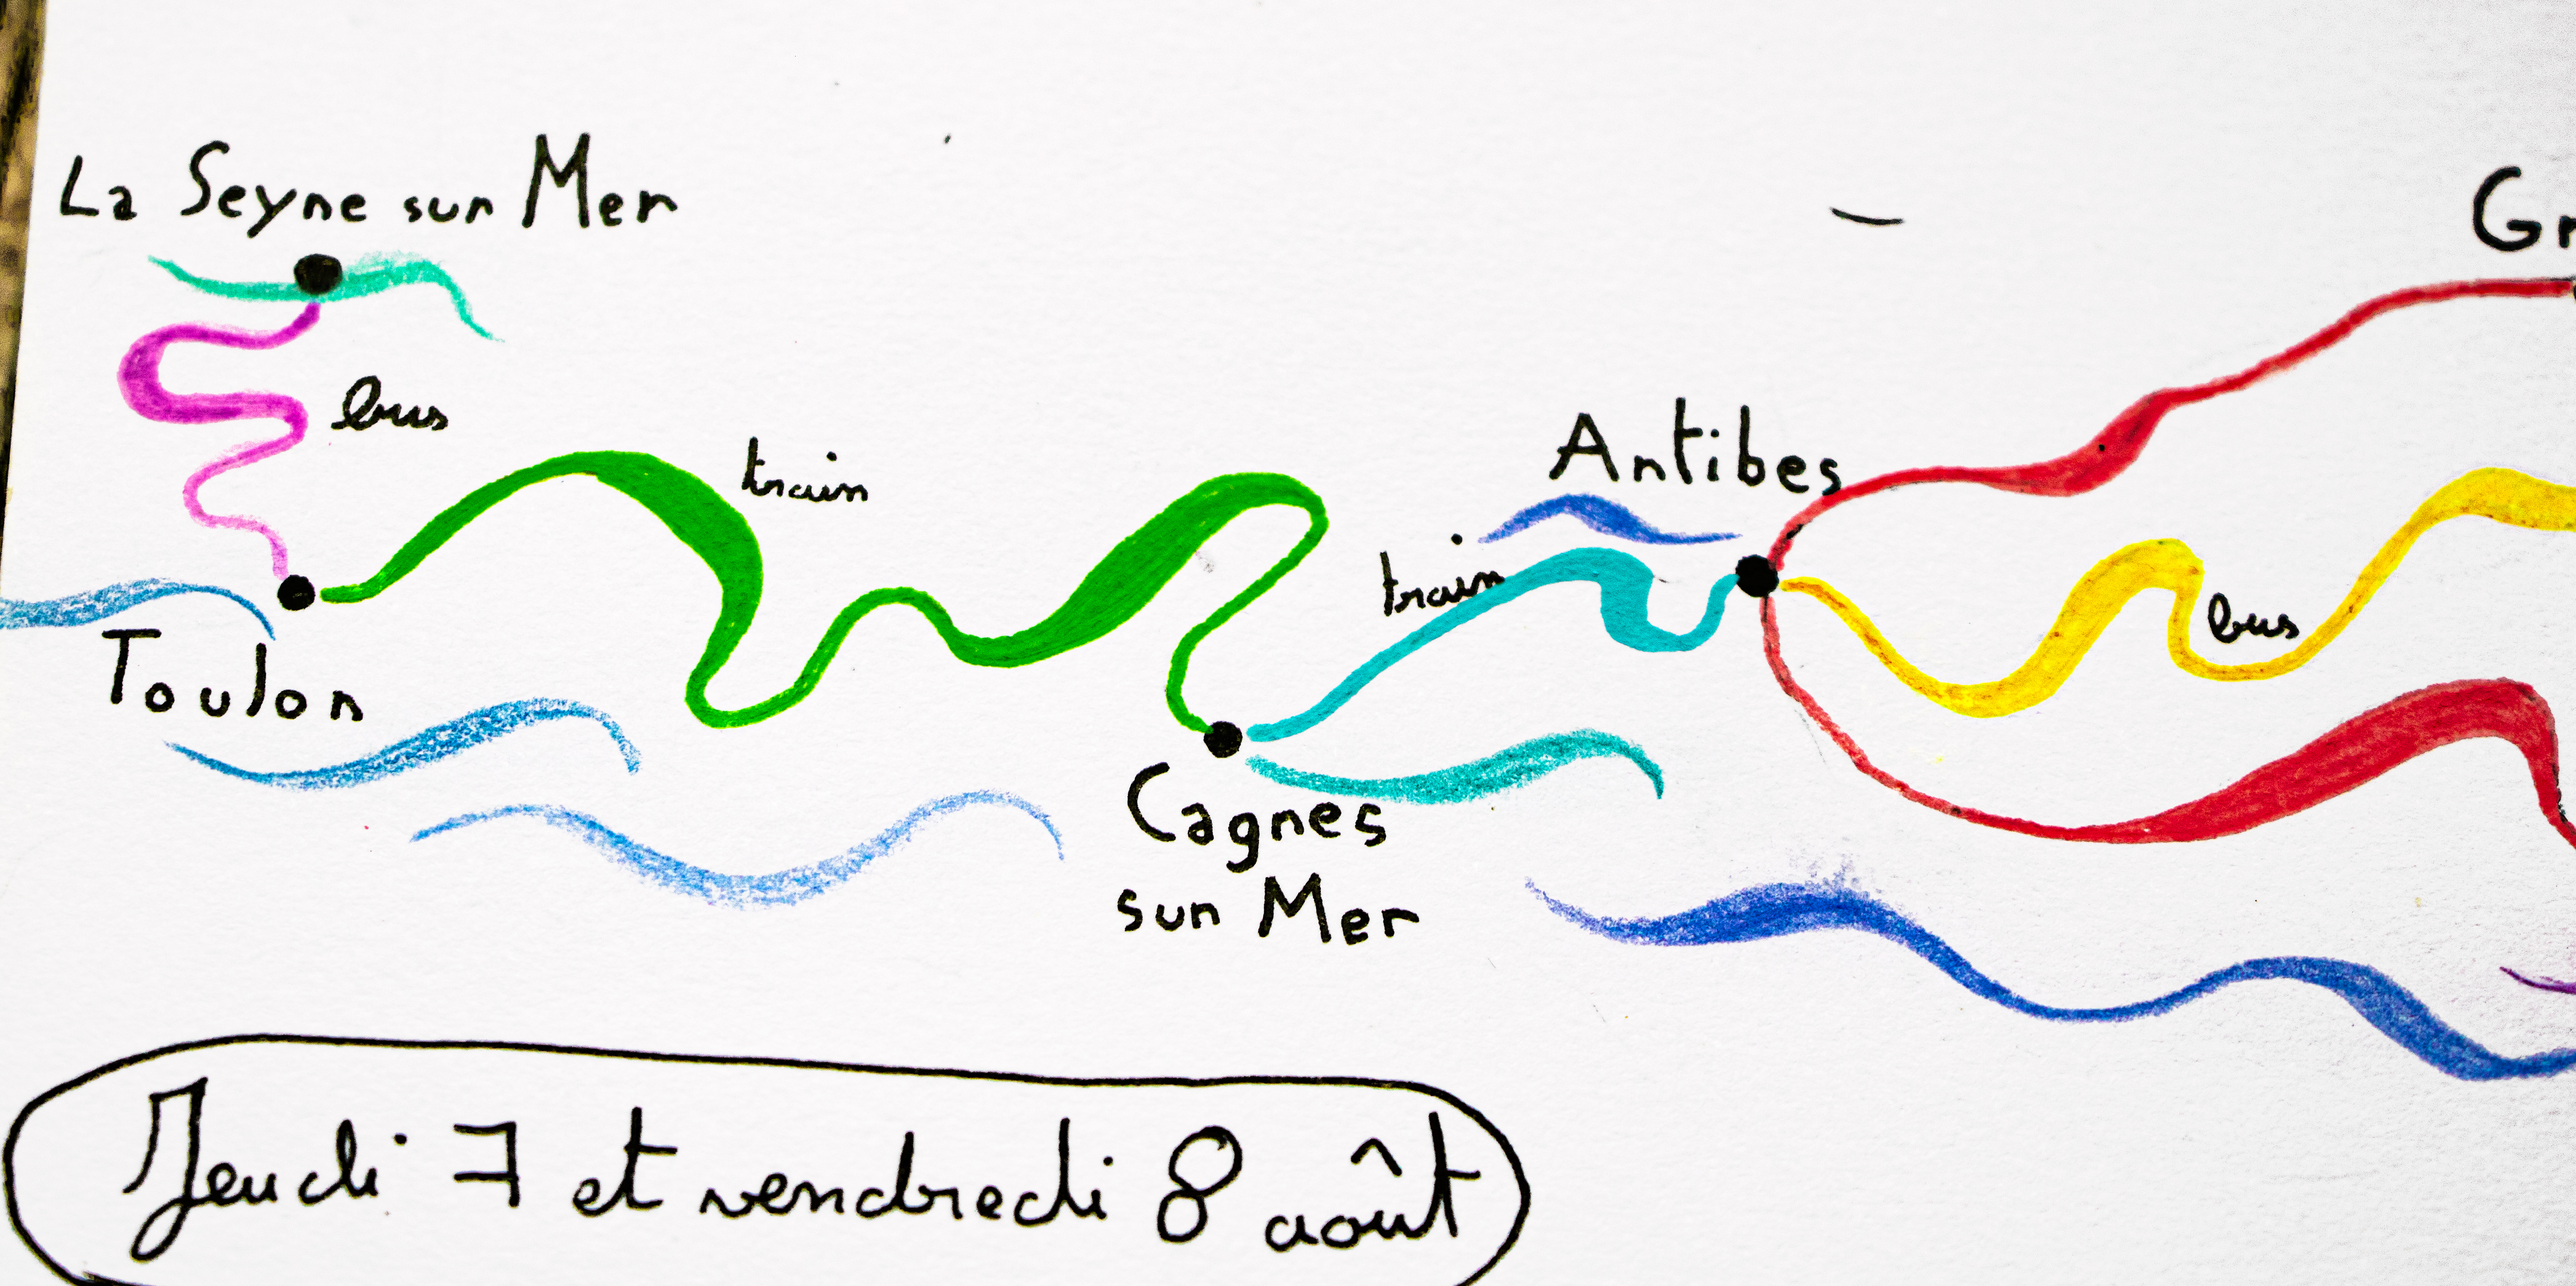 La Seyne sur Mer
bus
train
Toulon
Antibes
train
bus
Cagnes
sur Mer
Jeudi 7 et vendredi 8 août